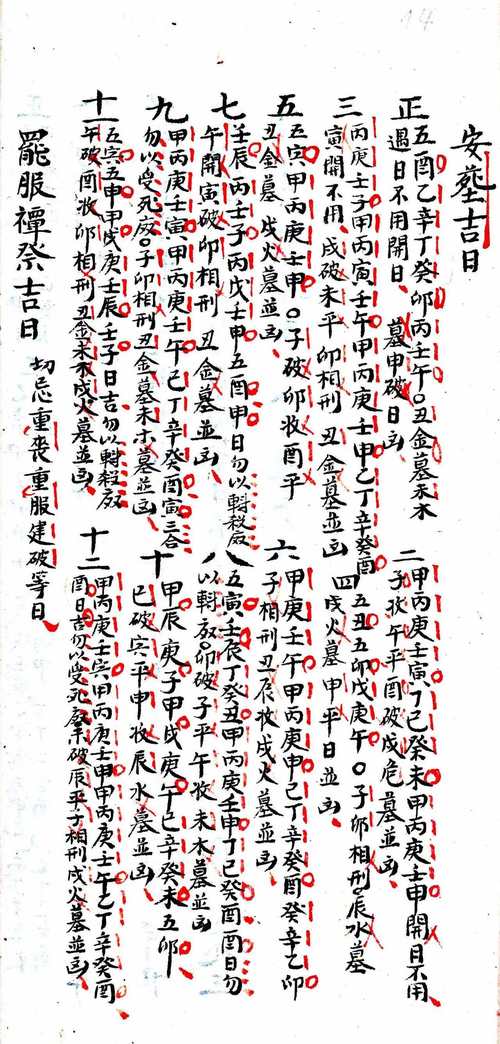 14
安塟吉日
正 五酉乙辛丁癸卯丙壬午○丑金墓未木
遇日不用開日、墓申破日凶、
二 甲丙庚壬寅、丁己癸未甲丙庚壬申開日不用
子收午平酉破戍危墓並凶、
三 丙庚壬子甲丙寅壬午甲丙庚壬申乙丁辛癸酉
寅開不用、戍破未平卯相刑丑金墓並凶
四 五丑五卯戊庚午○子卯相刑辰水墓
戍火墓申平日並凶、
五 五寅甲丙庚壬申○子破卯收酉平
丑金墓戍火墓並凶、
六 甲庚壬午甲丙庚申乙丁辛癸酉癸辛乙卯
子相刑丑辰收戍火墓並凶、
七 壬辰丙壬子丙戊壬申五酉申日勿以斢殺啟
午開寅破卯相刑丑金墓並凶、
八 五寅、壬辰丁癸丑甲丙庚壬申丁己癸酉酉日勿
以斢啟○卯破子平午收未木墓並凶
九 甲丙庚壬寅、甲丙庚壬午乙丁辛癸酉寅三合
勿以受死啟○子卯相刑丑金墓未木墓並凶、
十 甲辰庚子甲戍庚午乙辛癸未五卯
已破寅平申收辰水墓並凶、
十一 五寅五申甲戍庚壬辰壬子日吉勿以斢殺啟
午破酉收卯相刑丑金未木戍火墓並凶、
十二 甲丙庚壬寅甲丙庚壬申甲丙庚壬午乙丁辛癸酉
酉日吉勿以受死啟未破辰平子相刑戍火墓並凶、
罷服禫祭吉日 切忌重喪重服建破等日、